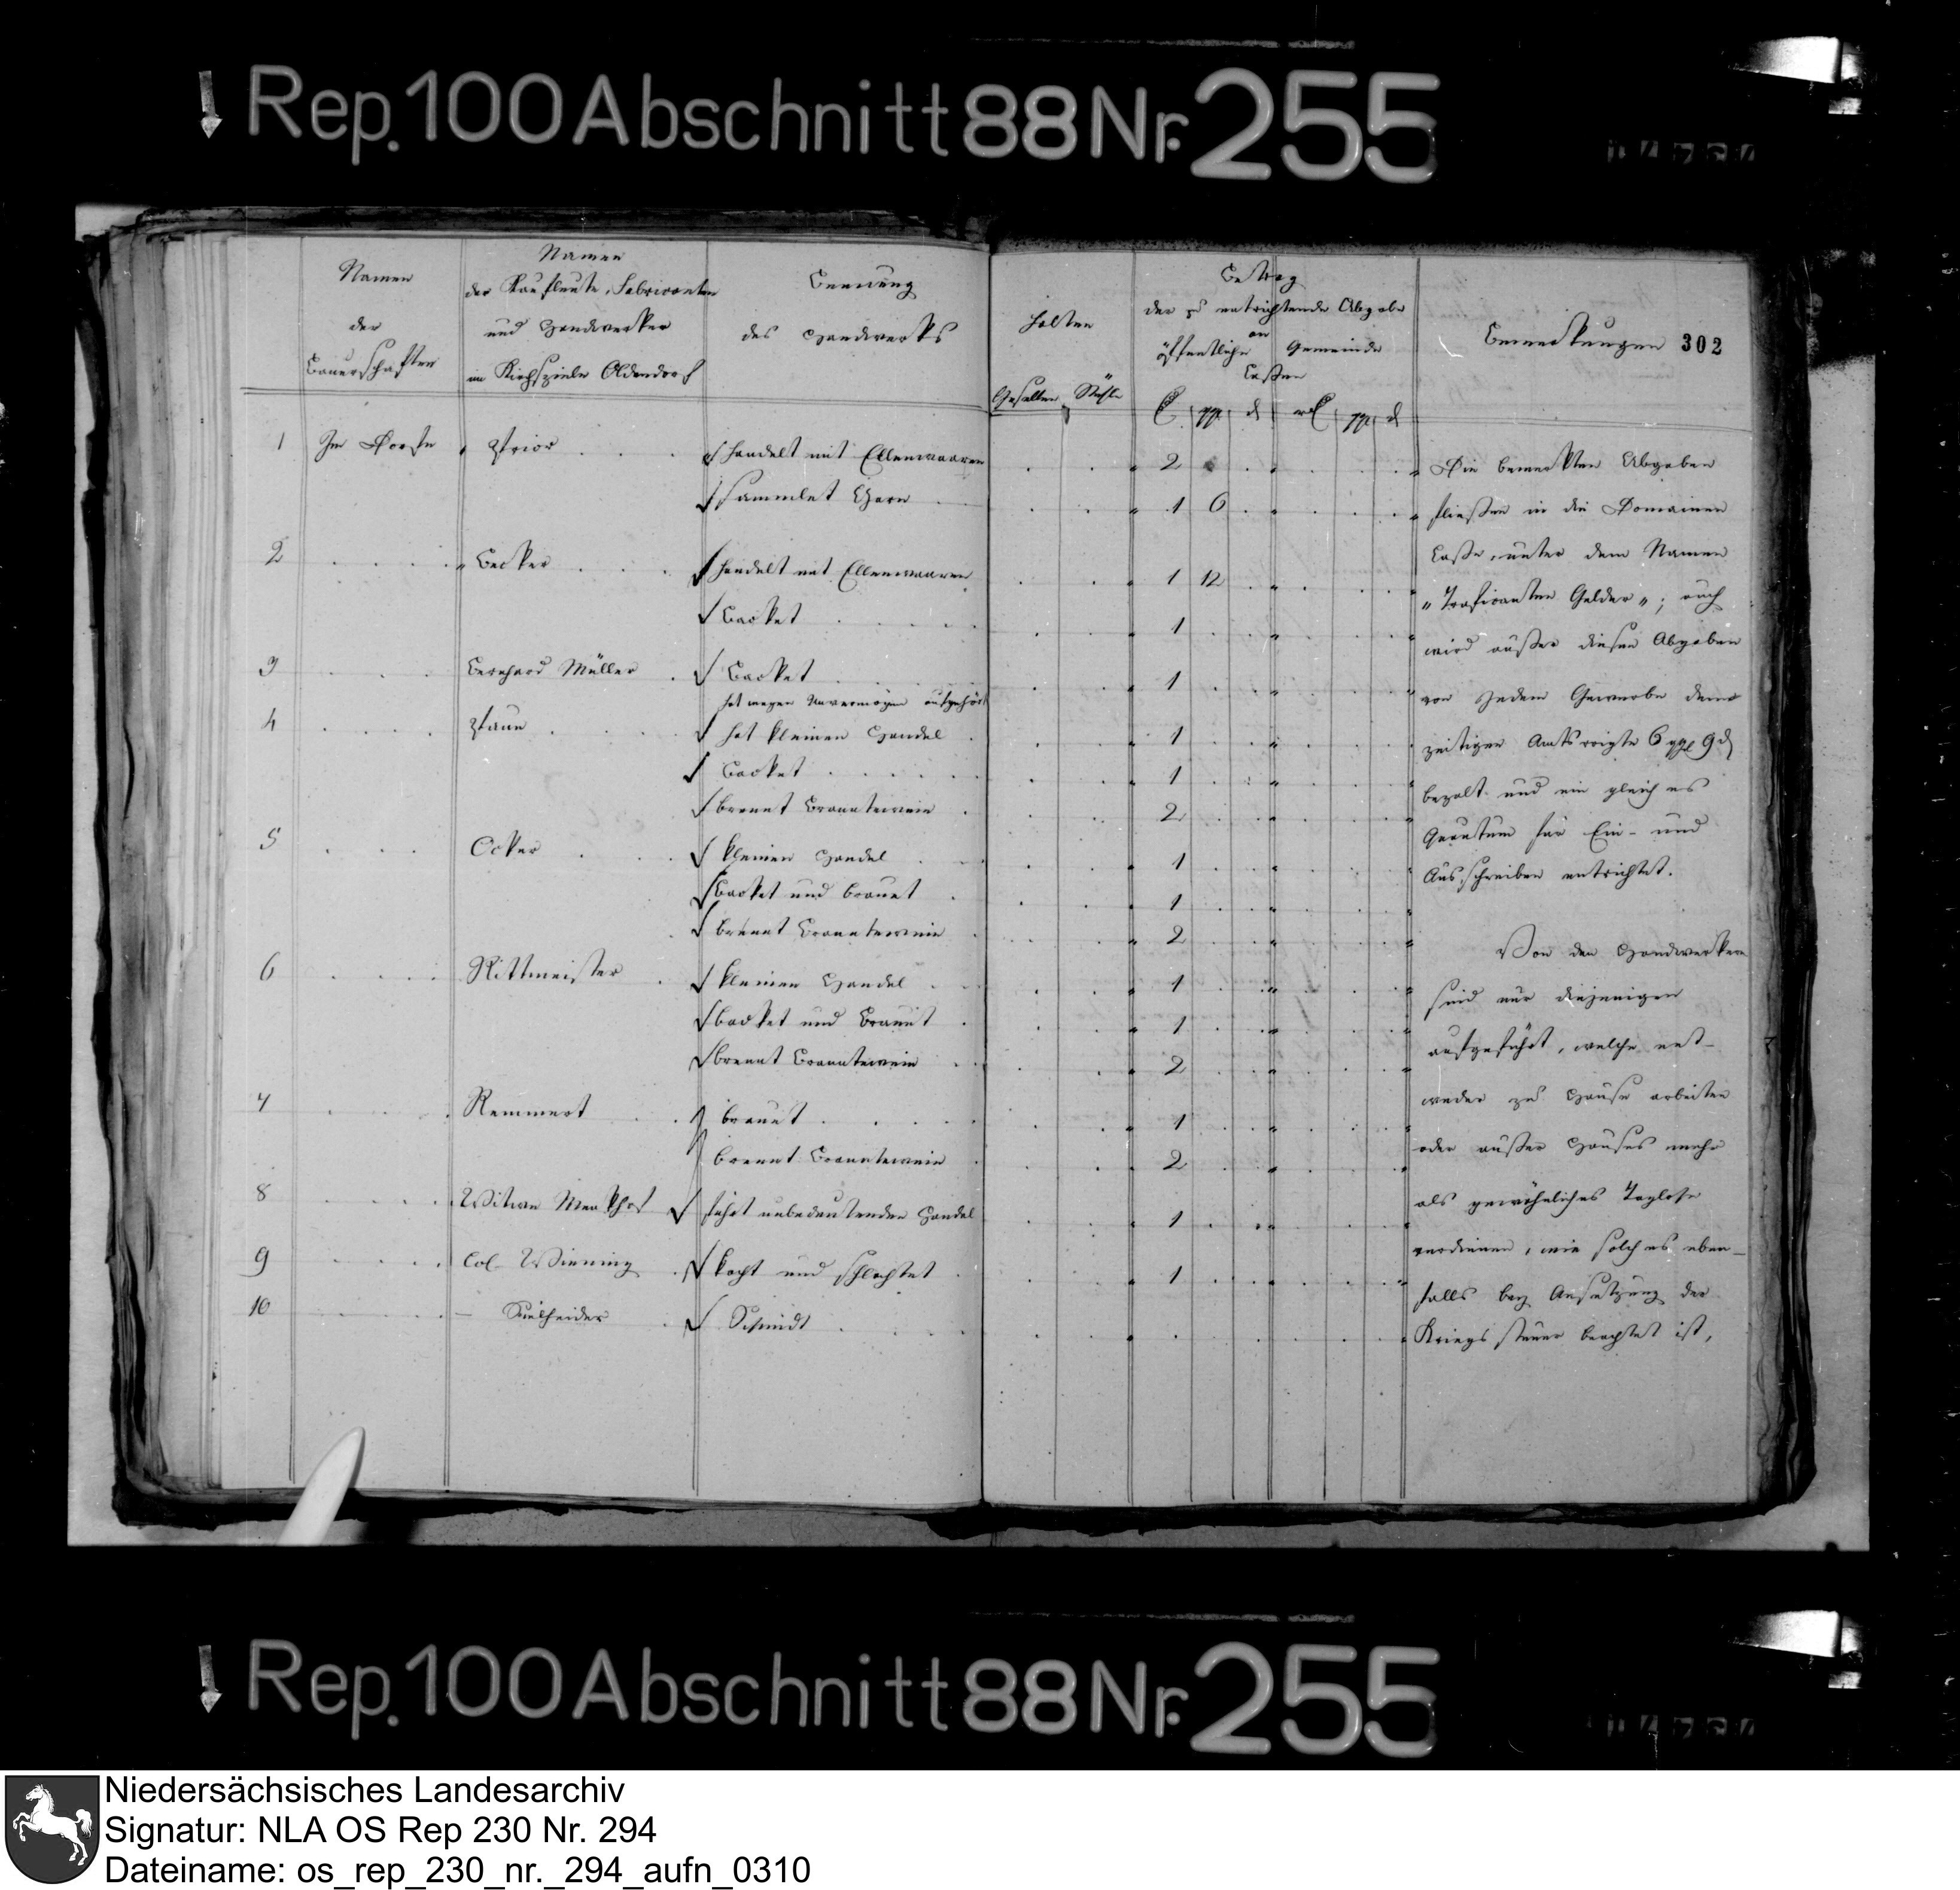 Rep. 100 Abschnitt 88 Nr. 255
Namen
der
Bauerschaften
Namen
der Kaufleute, Fabricanten
und Handwerker
im Kirchspiele Oldendorf
Bennung
des Handwerks
halten
Gesellen Stühle
Betrag
der zu entrichtende Abgabe
an
öffentliche Gemeinde
Cassen
ggr d ggr d
Bemerkungen 302
1 Im Dorfe Prior handelt mit Ellenwaaren 2
sammlet Garn 1 6
2 Becker handelt mit Ellenwaaren 1 12
Backet 1
3 Bernhard Müller Backet 1
hat wegen Unvermögen aufgehört
4 hat kleinen Handel 1
Backet 1
brennt Branntewein 2
5 Ocker kleinen Handel 1
Backet und brauet 1
brennt Branntewein 2
6 Rittmeister kleinen Handel 1
backet und brauet 1
brennt Branntewein 2
7 Remmert brauet 1
brennt Branntewein 2
8 Witwe Menkhof führt unbedeutenden Handel 1
9 Col. Wienning kocht und schlachtet 1
10 — Schmidt
Die bemerkten Abgaben
fließen in die Domainen
Casse, unter dem Namen
„Traficanten Gelder„; auch
wird außer diesen Abgaben
von jedem Gewerbe dem
zeitigen Amtsvoigte 6 ggr 9 d
bezalt und ein gleiches
Quantum für Ein- und
Ausschreiben entrichtet.
Von den Handwerkern
sind nur diejenigen
aufgeführt, welche ent-
weder zu Hause arbeiten
oder außer Hauses mehr
als gewöhnliches Taglohn
verdienen, wie solches eben-
falls bey Ansetzung der
Kriegssteuer beachtet ist,
Rep. 100 Abschnitt 88 Nr. 255
Niedersächsisches Landesarchiv
Signatur: NLA OS Rep 230 Nr. 294
Dateiname: os_rep_230_nr._294_aufn_0310